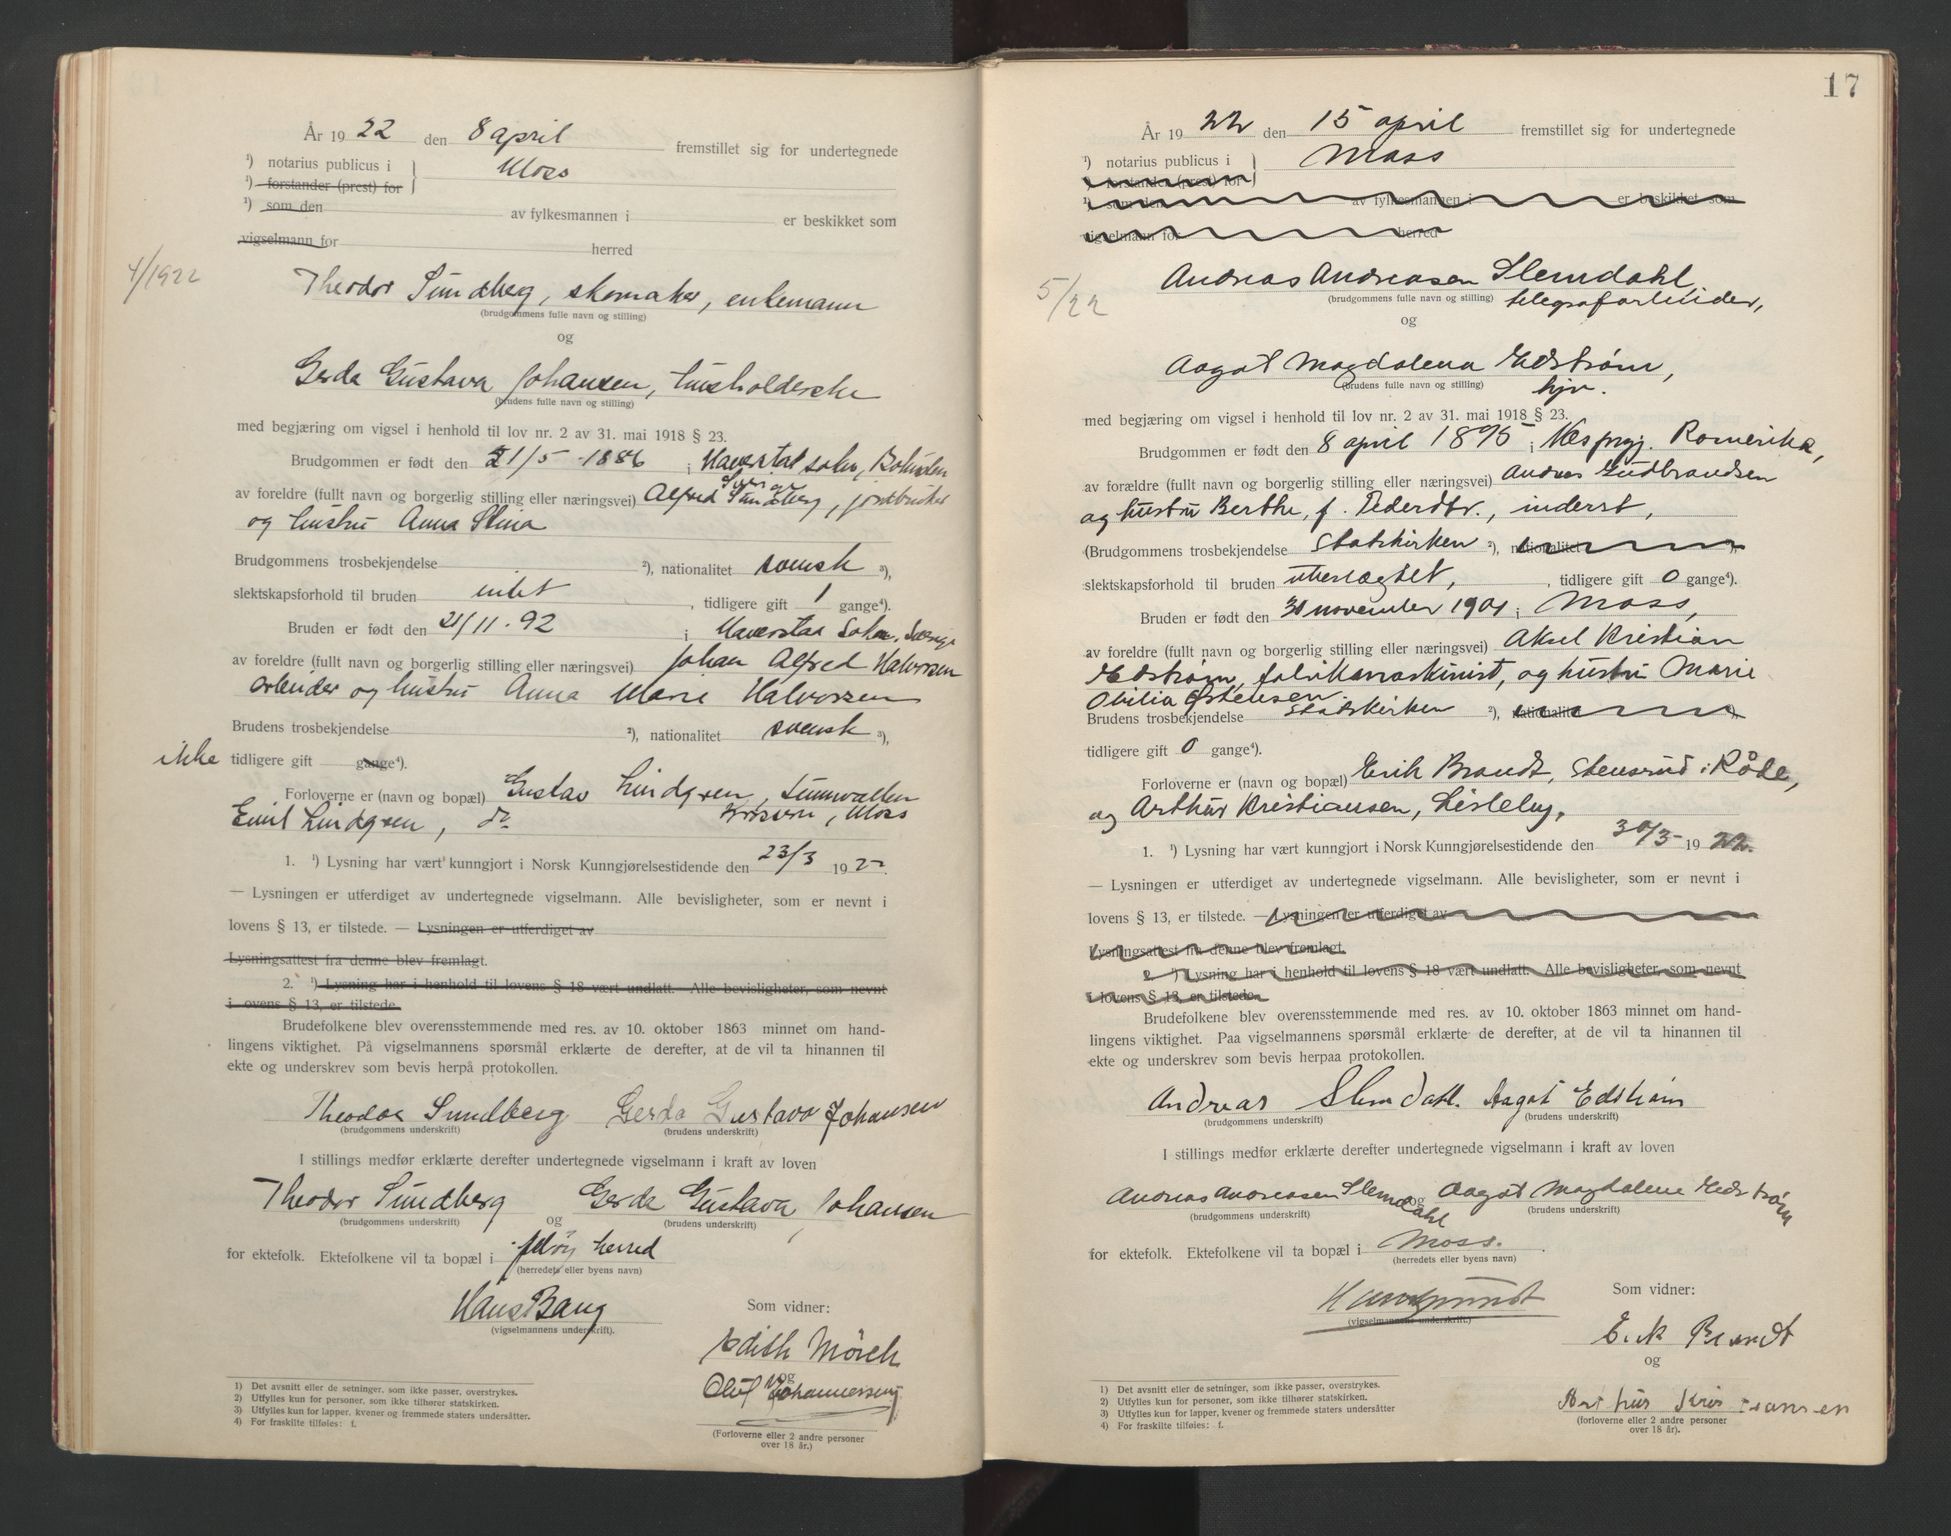 År 1922 den 8 april fremstillet sig for undertegnede
¹) notarius publicus i } Moss
¹) forstander (prest) for
¹) som den av fylkesmannen i er beskikket som
vigselmann for herred
4/1922
Theodor Sundberg, skomaker, enkemann
(brudgommens fulle navn og stilling)
og
Gerda Gustava Johansen, husholderske
(brudens fulle navn og stilling)
med begjæring om vigsel i henhold til lov nr. 2 av 31. mai 1918 § 23.
Brudgommen er født den 21/5 1886 i Naverstad sokn, Bohuslen
Sverige
av foreldre (fullt navn og borgerlig stilling eller næringsvei) Alfred Sundberg, jordbruker
og hustru Anna Stina
Brudgommens trosbekjendelse ²), nationalitet svensk ³),
slektskapsforhold til bruden intet, tidligere gift 1 gange⁴).
Bruden er født den 21/11.92 i Naverstad Sokn, Sverige
av foreldre (fullt navn og borgerlig stilling eller næringsvei) Johan Alfred Halvorsen
arbeider og hustru Anna Marie Halvorsen
Brudens trosbekjendelse ²), nationalitet svensk ³),
ikke tidligere gift gange⁴).
Forloverne er (navn og bopæl) Gustav Lindgren,
Emil Lindgren, do Moss
1. ¹) Lysning har vært kunngjort i Norsk Kunngjørelsestidende den 23/3 192-.
— Lysningen er utferdiget av undertegnede vigselmann. Alle bevisligheter, som er nevnt i
lovens § 13, er tilstede. — Lysningen er utferdiget av
Lysningsattest fra denne blev fremlagt.
2. ¹) Lysning har i henhold til lovens § 18 vært undlatt. Alle bevisligheter, som nevnt
i lovens § 13, er tilstede.
Brudefolkene blev overensstemmende med res. av 10. oktober 1863 minnet om hand-
lingens viktighet. På vigselmannens spørsmål erklærte de derefter, at de vil ta hinannen til
ekte og underskrev som bevis herpå protokollen.
Theodor Sundberg Gerda Gustava Johansen
(brudgommens underskrift) (brudens underskrift)
I stillings medfør erklærte derefter undertegnede vigselmann i kraft av loven
Theodor Sundberg og Gerda Gustava Johansen
(brudgommens underskrift) (brudens underskrift)
for ektefolk. Ektefolkene vil ta bopæl i Jeløy herred
(herredets eller byens navn)
Hans Bang
(vigselmannens underskrift).
Som vidner:
Edith Mörch
og
Oluf Johannessen
(Forloverne eller 2 andre personer
over 18 år.)
1) Det avsnitt eller de setninger, som ikke passer, overstrykes.
2) Utfylles kun for personer, som ikke tilhører statskirken.
3) Utfylles kun for lapper, kvener og fremmede staters undersåtter.
4) For fraskilte tilføies: f.
17
År 1922 den 15 april fremstillet sig for undertegnede
¹) notarius publicus i } Moss
¹) forstander (prest) for
¹) som den av fylkesmannen i er beskikket som
vigselmann for herred
5/22
Andreas Andreasen Slemdahl,
(brudgommens fulle navn og stilling) telegrafarbeider,
og
Aagot Magdalena Edstrøm,
(brudens fulle navn og stilling) hjv.
med begjæring om vigsel i henhold til lov nr. 2 av 31. mai 1918 § 23.
Brudgommen er født den 8 april 1895 i Nes prgj. Romerike,
av forældre (fullt navn og borgerlig stilling eller næringsvei) Andreas Gudbrandsen
og hustru Berthe, f. Pedersdtr., inderst,
(Brudgommens trosbekjendelse Statskirken ²), nationalitet ³),
slektskapsforhold til bruden ubeslægtet, tidligere gift 0 gange⁴).
Bruden er født den 30 november 1901 i Moss,
av foreldre (fullt navn og borgerlig stilling eller næringsvei) Aksel Kristian
Edstrøm, fabrikmaskinist, og hustru Marie
Otilia Østensen
Brudens trosbekjendelse Statskirken ²), nationalitet ³),
tidligere gift 0 gange⁴).
Forloverne er (navn og bopæl) Erik Brandt, Stensrud i Råde,
og Arthur Kristiansen, Lisleby.
1. ¹) Lysning har vært kunngjort i Norsk Kunngjørelsestidende den 30/3 1922.
— Lysningen er utferdiget av undertegnede vigselmann. Alle bevisligheter, som er nevnt i
lovens § 13, er tilstede. — Lysningen er utferdiget av
Lysningsattest fra denne blev fremlagt.
2. ¹) Lysning har i henhold til lovens § 18 vært undlatt. Alle bevisligheter, som nevnt
i lovens § 13, er tilstede.
Brudefolkene blev overensstemmende med res. av 10. oktober 1863 minnet om hand-
lingens viktighet. Paa vigselmannens spørsmål erklærte de derefter, at de vil ta hinannen til
ekte og underskrev som bevis herpaa protokollen.
Andreas Slemdahl. Aagot Edstrøm
(brudgommens underskrift) (brudens underskrift)
I stillings medfør erklærte derefter undertegnede vigselmann i kraft av loven
Andreas Andreasen Slemdahl og Aagot Magdalene Edstrøm
(brudgommens underskrift) (brudens underskrift)
for ektefolk. Ektefolkene vil ta bopæl i Moss.
(herredets eller byens navn)
(vigselmannens underskrift.)
Som vidner:
Erik Brandt
og
Arthur Kristiansen
(forloverne eller 2 andre personer
over 18 år).
1) Det avsnitt eller de setninger, som ikke passer, overstrykes.
2) Utfylles kun for personer, som ikke tilhører statskirken.
3) Utfylles kun for lapper, kvener og fremmede staters undersåtter
4) For fraskilte tilføies: f.